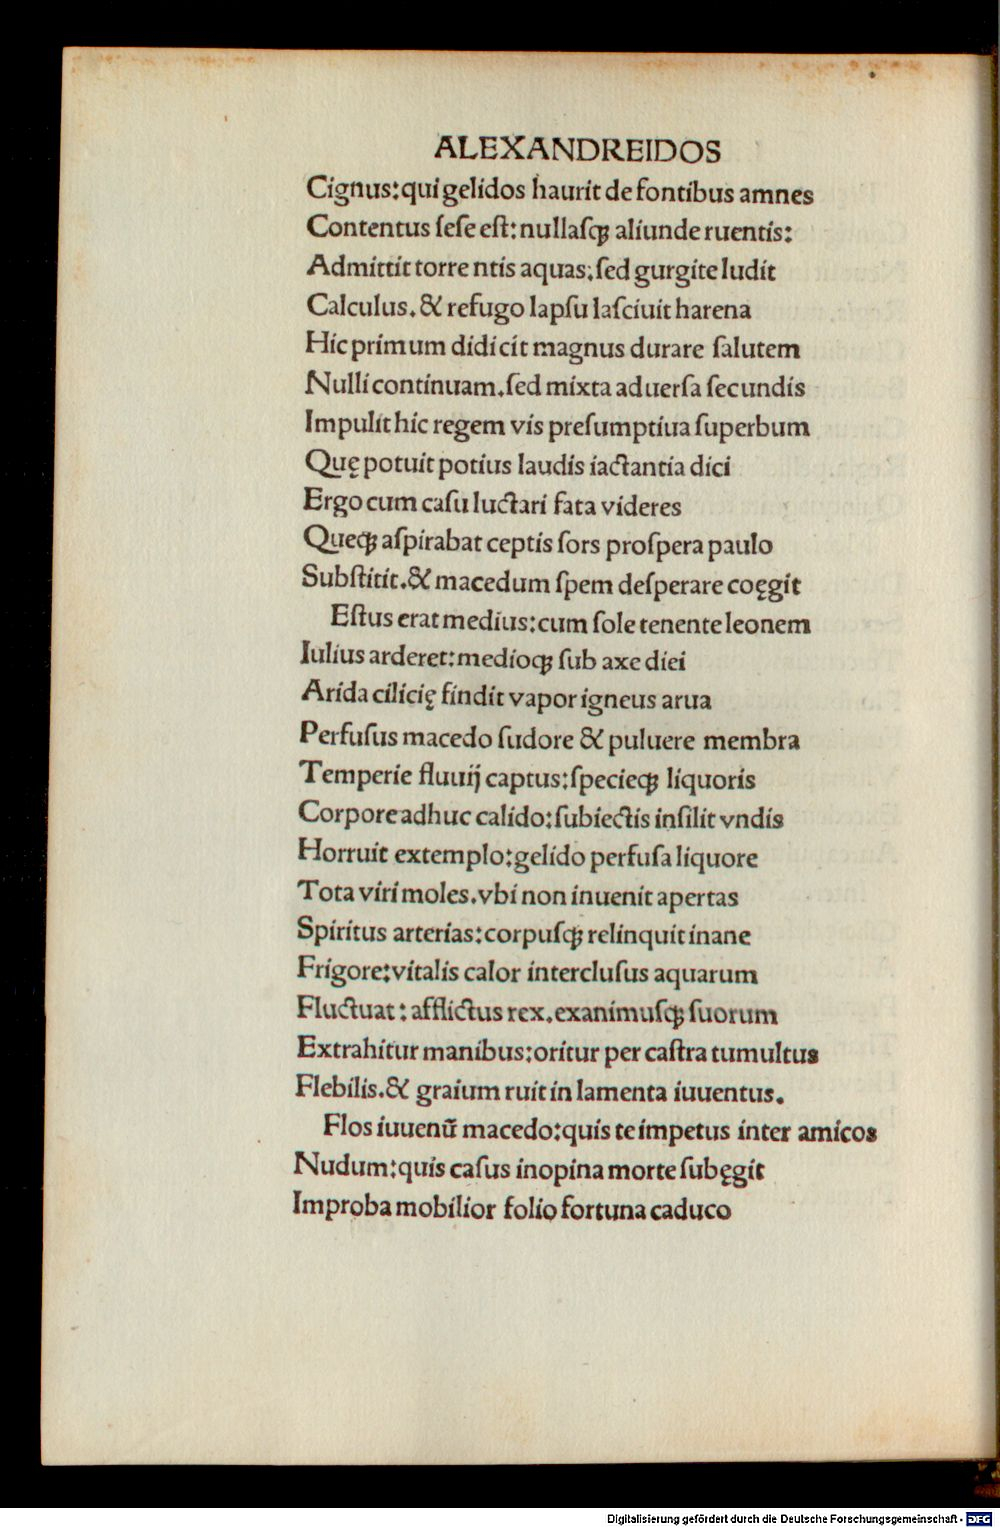 ALEXANDREIDOS
Cignus:qui gelidos haurit de fontibus amnes
Contentus ſeſe eſt:nullaſqꝫ aliunde ruentis:
Admittit torre ntis aquas:ſed gurgite ludit
Calculus.& refugo lapſu laſciuit harena
Hic primum didicit magnus durare ſalutem
Nulli continuam.ſed mixta aduerſa ſecundis
Impulit hic regem vis preſumptiua ſuperbum
Quę potuit potius laudis iactantia dici
Ergo cum caſu luctari fata videres
Queqꝫ aſpirabat ceptis ſors proſpera paulo
Subſtitit.& macedum ſpem deſperare coęgit
Eſtus erat medius:cum ſole tenente leonem
Iulius arderet:medioqꝫ ſub axe diei
Arida cilicię findit vapor igneus arua
Perfuſus macedo ſudore & puluere membra
Temperie fluuij captus:ſpecieqꝫ liquoris
Corpore adhuc calido:ſubiectis inſilit vndis
Horruit extemplo:gelido perfuſa liquore
Tota viri moles.vbi non inuenit apertas
Spiritus arterias:corpuſqꝫ relinquit inane
Frigore:vitalis calor intercluſus aquarum
Fluctuat: afflictus rex.exanimuſqꝫ ſuorum
Extrahitur manibus:oritur per caſtra tumultus
Flebilis.& graium ruit in lamenta iuuentus.
Flos iuuenū macedo:quis te impetus inter amicos
Nudum:quis caſus inopina morte ſubęgit
Improba mobilior folio fortuna caduco
Digitalisierung gefördert durch die Deutsche Forschungsgemeinschaft - DFG